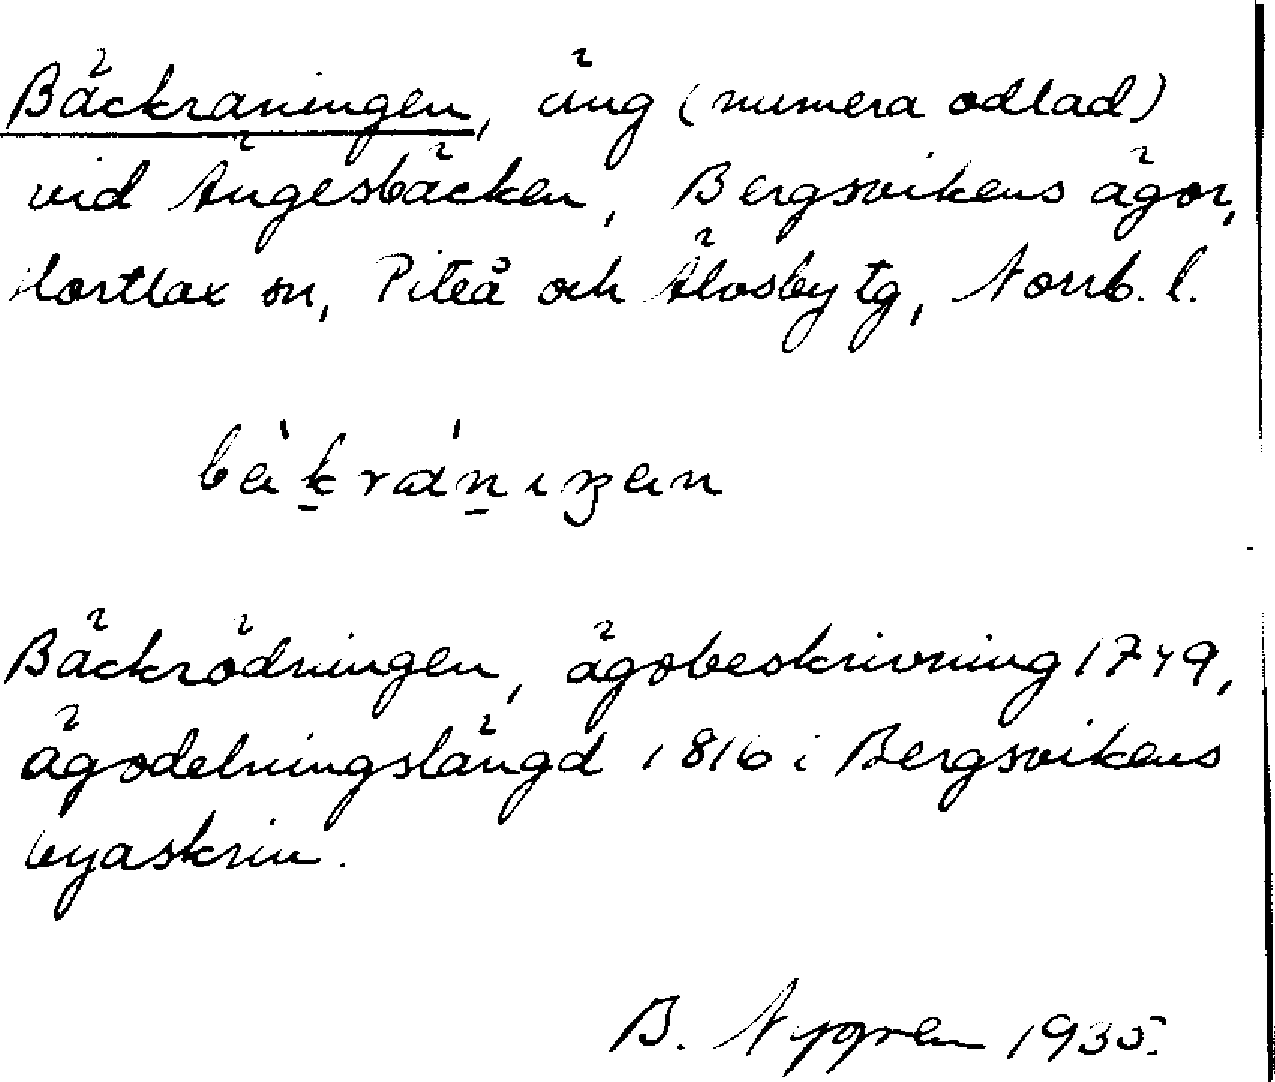 Bäckräningen, äng (numera odlad)
vid Ängesbäcken, Bergsvikens ägor,
Hortlax sn, Piteå och Älvsby tg, Norrb. l.
bäkräniŋen
Bäckrödningen, ägobeskrivning 1749,
ägodelningslängd 1816 i Bergsvikens
byaskrin.
B. Nygren 1935.